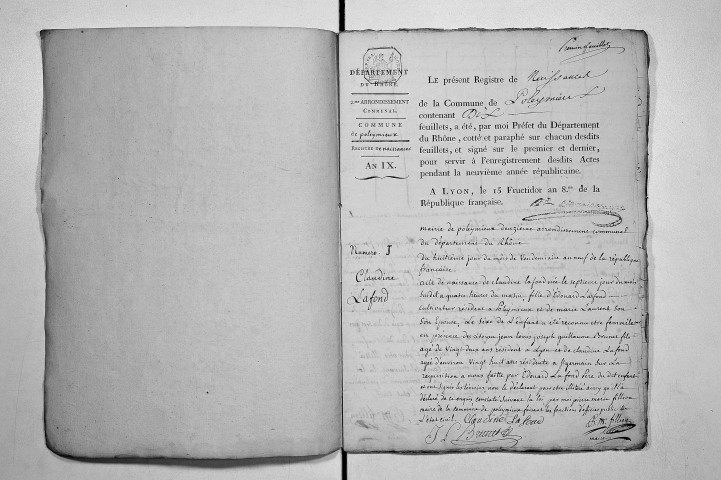 Premier feuillet
DÉPARTEMENT
DU RHÔNE.
2.me ARRONDISSEMENT
COMMUNAL.
COMMUNE
de poleymieux
REGISTRE DE naissances
AN IX.
LE présent Registre de Naissances
de la Commune de Poleymieux
contenant Dix
feuillets, a été, par moi Préfet du Département
du Rhône, cotté et paraphé sur chacun desdits
feuillets, et signé sur le premier et dernier,
pour servir à l'enregistrement desdits Actes
pendant la neuvième année républicaine.
A LYON, le 15 Fructidor an 8.me de la
République française.
mairie de poleymieux deuzieme arrondissement communal
du département du Rhône
Numero 1
Claudine
Lafond
du huitieme jour du mois de Vendemiaire an neuf de la république
française.
acte de naissance de claudine lafond née le septieme jour du mois
susdit a quatre heures du matin, fille d'Edouard Lafond
cultivateur résident a Poleymieux et de marie Laurent son
Epouse, Le sexe de L'enfant a été reconnu etre femelle
en presence du citoyen jean louis joseph guillaume Brunet
agé de Vingt deux ans résident a Lyon et de claudine Lafond
agée d'environ Vingt huit ans résidente a St germain sur La
requisition a nous faitte par Edouard La fond Père du dit enfant
et ont signé les temoins, non le declarant pour etre illitéré ainsy qu'il a
déclaré de ce enquis, constaté suivant la loi par moi pierre marie fillion
maire de la commune de poleymieux faisant les fonctions d'officier public de
L'état civil. Claudine Lafond
P. m. fillion
maire
J L Brunet